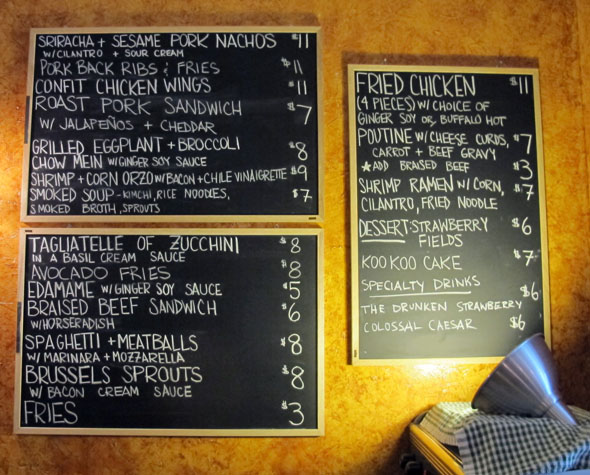 SRIRACHA + SESAME PORK NACHOS $11
W/CILANTRO + SOUR CREAM
PORK BACK RIBS & FRIES $11
CONFIT CHICKEN WINGS $11
ROAST PORK SANDWICH $7
W/ JALAPEÑOS + CHEDDAR
GRILLED EGGPLANT + BROCCOLI $8
CHOW MEIN W/GINGER SOY SAUCE
SHRIMP + CORN ORZO W/BACON + CHILE VINAIGRETTE $9
SMOKED SOUP - KIMCHI, RICE NOODLES, $7
SMOKED BROTH, SPROUTS
TAGLIATELLE OF ZUCCHINI $8
IN A BASIL CREAM SAUCE
AVOCADO FRIES $8
EDAMAME W/GINGER SOY SAUCE $5
BRAISED BEEF SANDWICH $6
W/HORSERADISH
SPAGHETTI + MEATBALLS $8
W/ MARINARA + MOZZARELLA
BRUSSELS SPROUTS $8
W/ BACON CREAM SAUCE
FRIES $3
FRIED CHICKEN $11
(4 PIECES) W/ CHOICE OF
GINGER SOY OR BUFFALO HOT
POUTINE W/ CHEESE CURDS, $7
CARROT + BEEF GRAVY
*ADD BRAISED BEEF $3
SHRIMP RAMEN W/ CORN, $7
CILANTRO, FRIED NOODLE
DESSERT: STRAWBERRY $6
FIELDS
KOO KOO CAKE $7
SPECIALTY DRINKS
THE DRUNKEN STRAWBERRY $6
COLOSSAL CAESAR $6